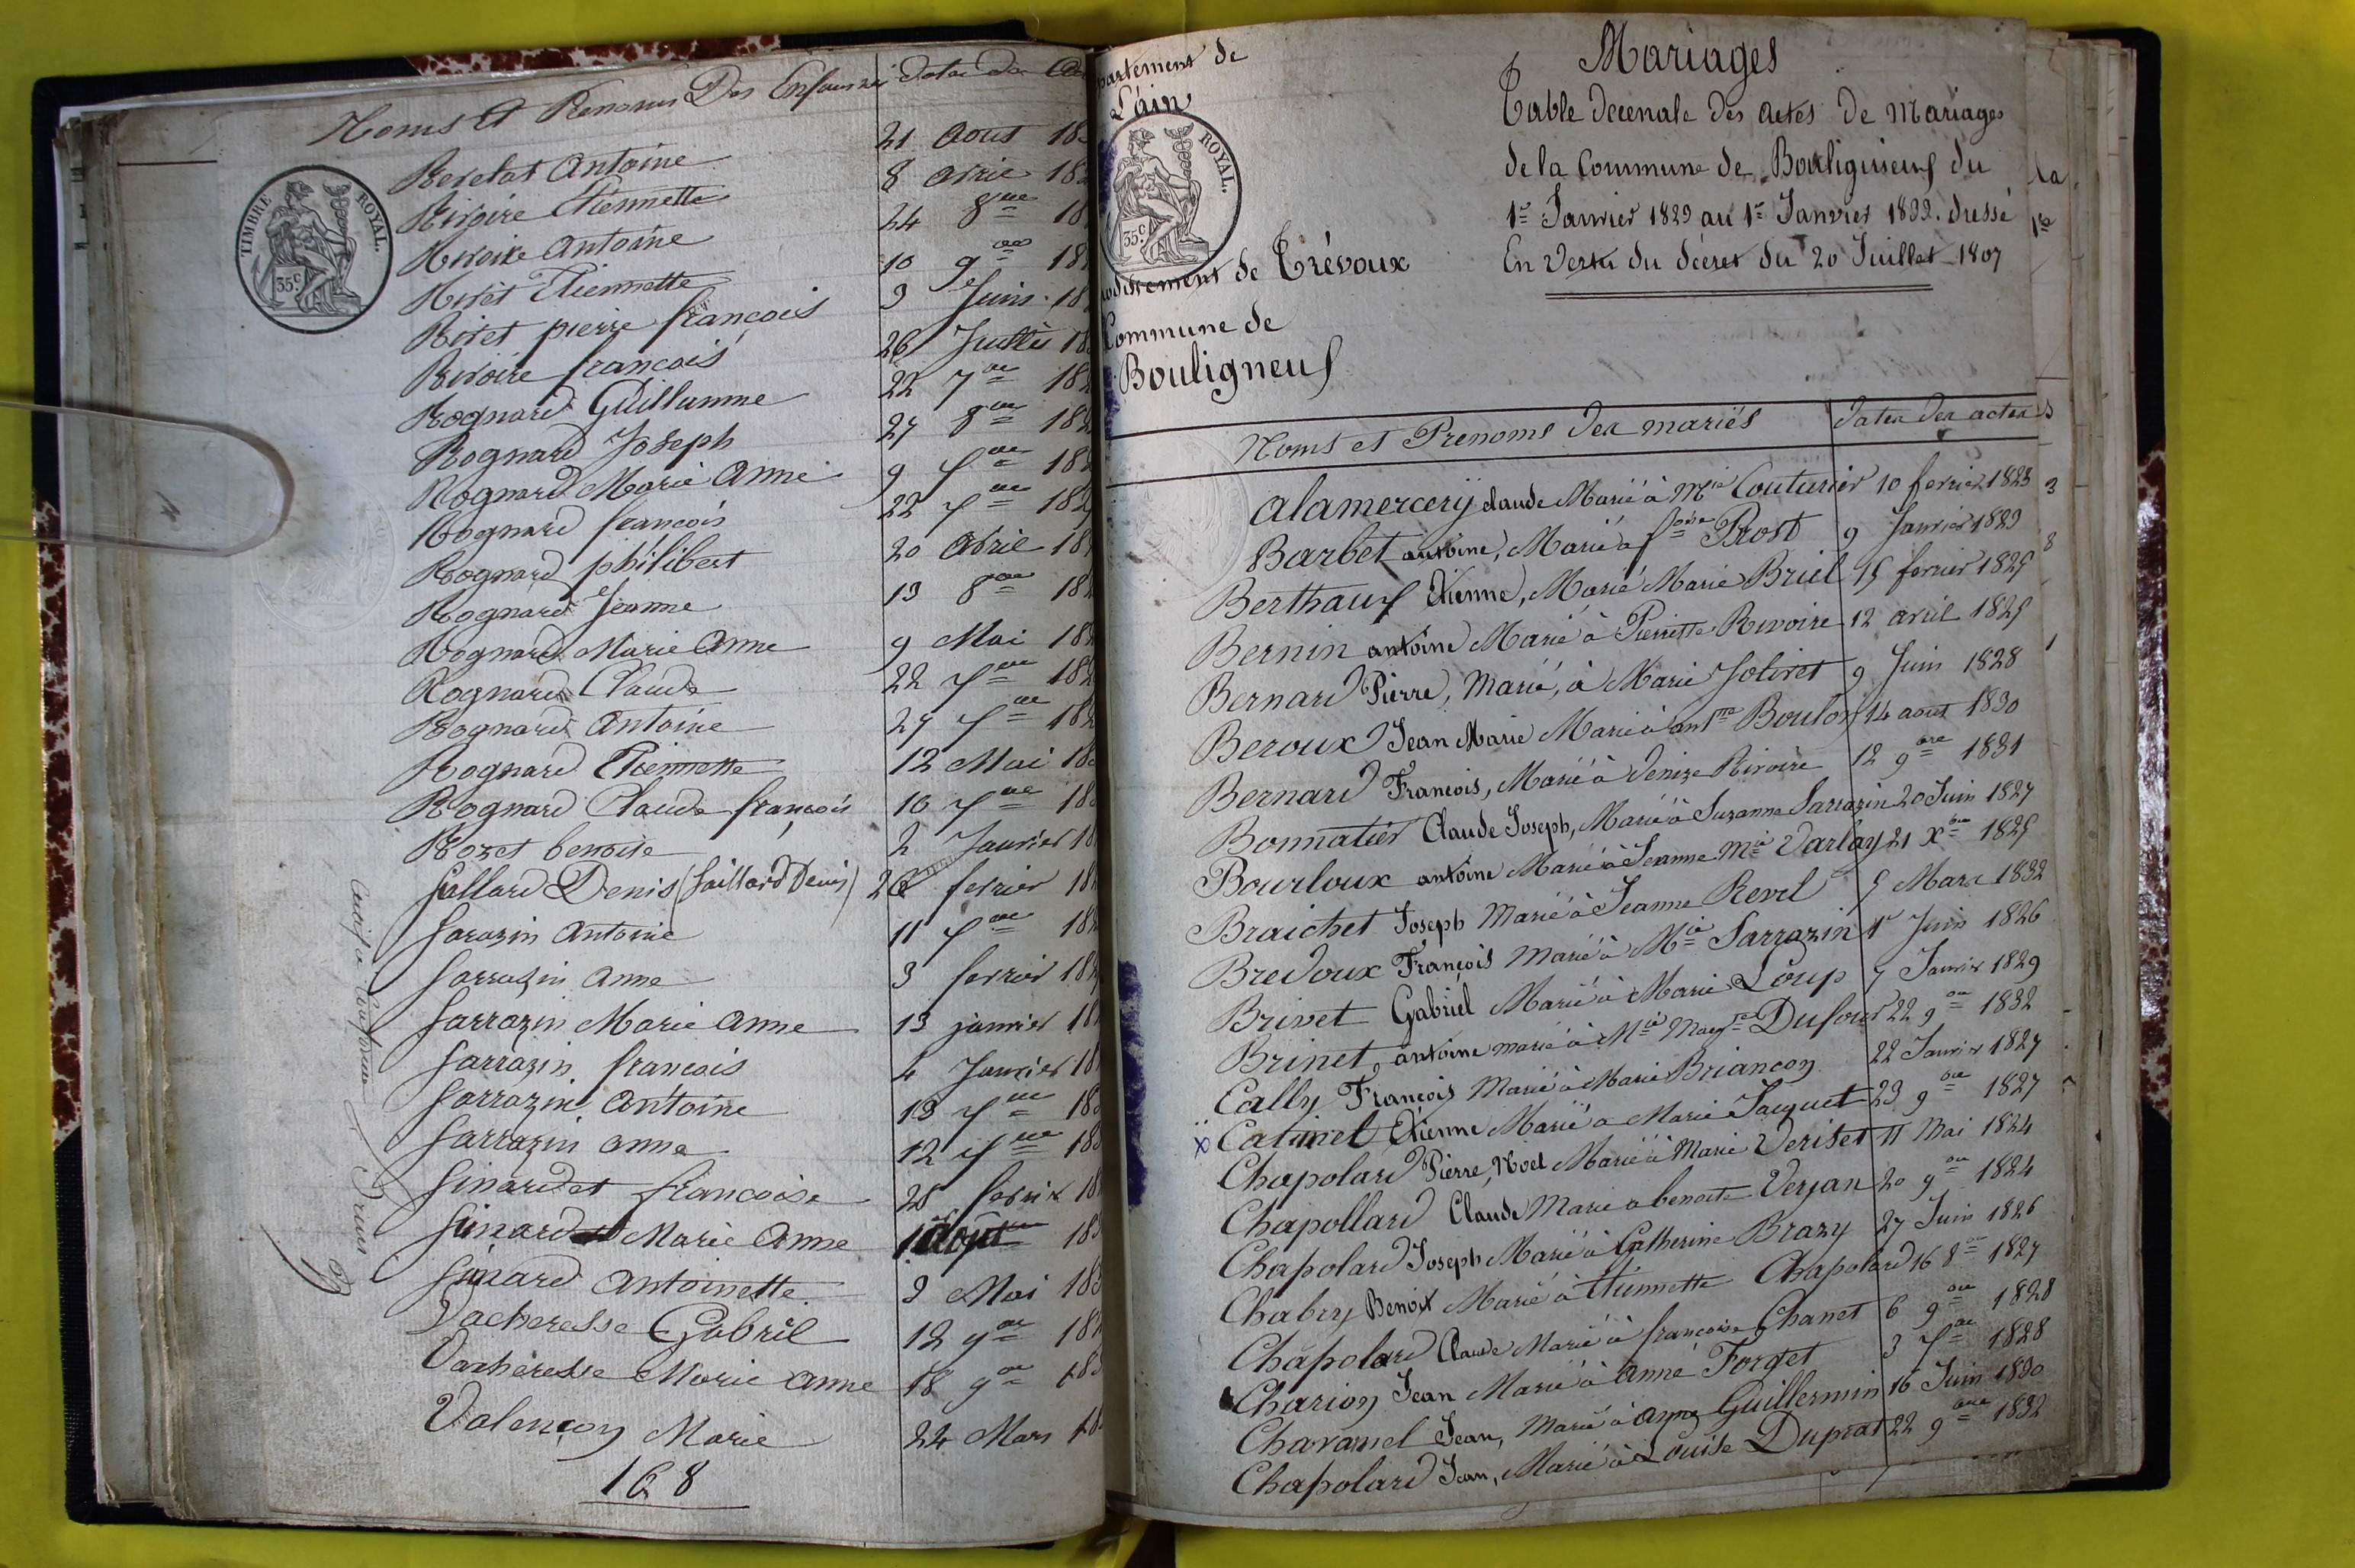 Noms et Prenoms Des Enfans
TIMBRE ROYAL.
35 c
Revelat Antoine 21 Aout 18
Rivoire Etiennette 8 avril 18
Rivoire Antoine 24 8bre 18
Rivet Etiennette 10 9bre 18
Rivet pierre françois 3 Juin 18
Rivoire francois 26 Juillet 18
Rognard Guillaume 22 7bre 18
Rognard Joseph 27 8bre 18
Rognard Marie Anne 9 7bre 18
Rognard françois 22 7bre 182
Rognard philibert 20 Abril 18
Rognard Jeanne 13 8bre 18
Rognard Marie Anne 9 Mai 18
Rognard Claude 22 7bre 182
Rognard Antoine 27 7bre 18
Rognard Etiennette 12 Mai 18
Rognard Claude françois 10 7bre 18
Rozet benoite 2 Janvier 18
Sallard Denis (Saillard Denis) fevrier 18
Sarazin Antoine 11 7bre 18
Sarrazin Anne 3 fevrier 18
Sarrazin Marie Anne 13 janvier 18
Sarrazin françois 4 Janvier 18
Sarrazin Antoine 13 7bre 18
Sarrazin anne 12 7bre 18
Sinardet francoise 28 fevrier 18
Sinard Marie Anne 1 Aout 18
Sinard Antoinette 9 Mai 18
Vacheresse Gabriel 12 9bre 18
Vacheresse Marie Anne 18 9bre 18
Valençon Marie 24 Mars 18
168
partement de
L'ain
ROYAL.
35 c
ondissement de Trévoux
Commune de
Bouligneuf
Mariages
Table decenale des actes de Mariages
de la Commune de Bouligneux du
1er Janvier 1823 au 1er Janvier 1833. dressé
En vertu du décret du 20 Juillet 1807
Noms et Prenoms des mariés dates des actes
alamercery claude Marié à Mie Couturier 10 fevrier 1823
Barbet antoine, Marié à fcoise Prost 9 Janvier 1823
Berthauf Etienne, Marié Marie Briel 15 fevrier 1825
Bernin antoine Marié à Pierrette Revoire 12 avril 1825
Bernard Pierre, Marié, à Marie Jolivet 9 Juin 1828
Beroux Jean Marie Marié à antte Boulon 14 aout 1830
Bernard François, Marié à Denize Rivoire 12 9bre 1831
Bonnatier Claude Joseph, Marié à Suzanne Sarrazin 20 Juin 1827
Bourloux antoine Marié à Jeanne Mie Varlay 21 Xbre 1825
Braichet Joseph Marié à Jeanne Revel 5 Mars 1832
Bredoux François Marié à Mie Sarrazin 1er Juin 1826
Brivet Gabriel Marié à Marie Loup 7 Janvier 1829
Brinet, antoine marié à Mie Margte Dufour 22 9bre 1832
Cally François Marié à Marie Briancon 22 Janvier 1827
x Catinet Etienne Marié a Marie Jacquet 23 9bre 1827
Chapolard Pierre, Noel Marié à Marie Veriset 11 Mai 1824
Chapollard Claude Marié a benoite Verjan 20 9bre 1824
Chapolard Joseph Marié à Catherine Brazy 27 Juin 1826
Chabry Benoit Marié à Etiennette Chapolard 16 8bre 1827
Chapolard Claude Marié à françoise Chanet 6 9bre 1828
Charion Jean Marié à Anne Forget 3 7bre 1828
Charamel Jean, Marié à Anne Guillermin 16 Juin 1830
Chapolard Jean, Marié à Louise Duprat 22 9bre 1832